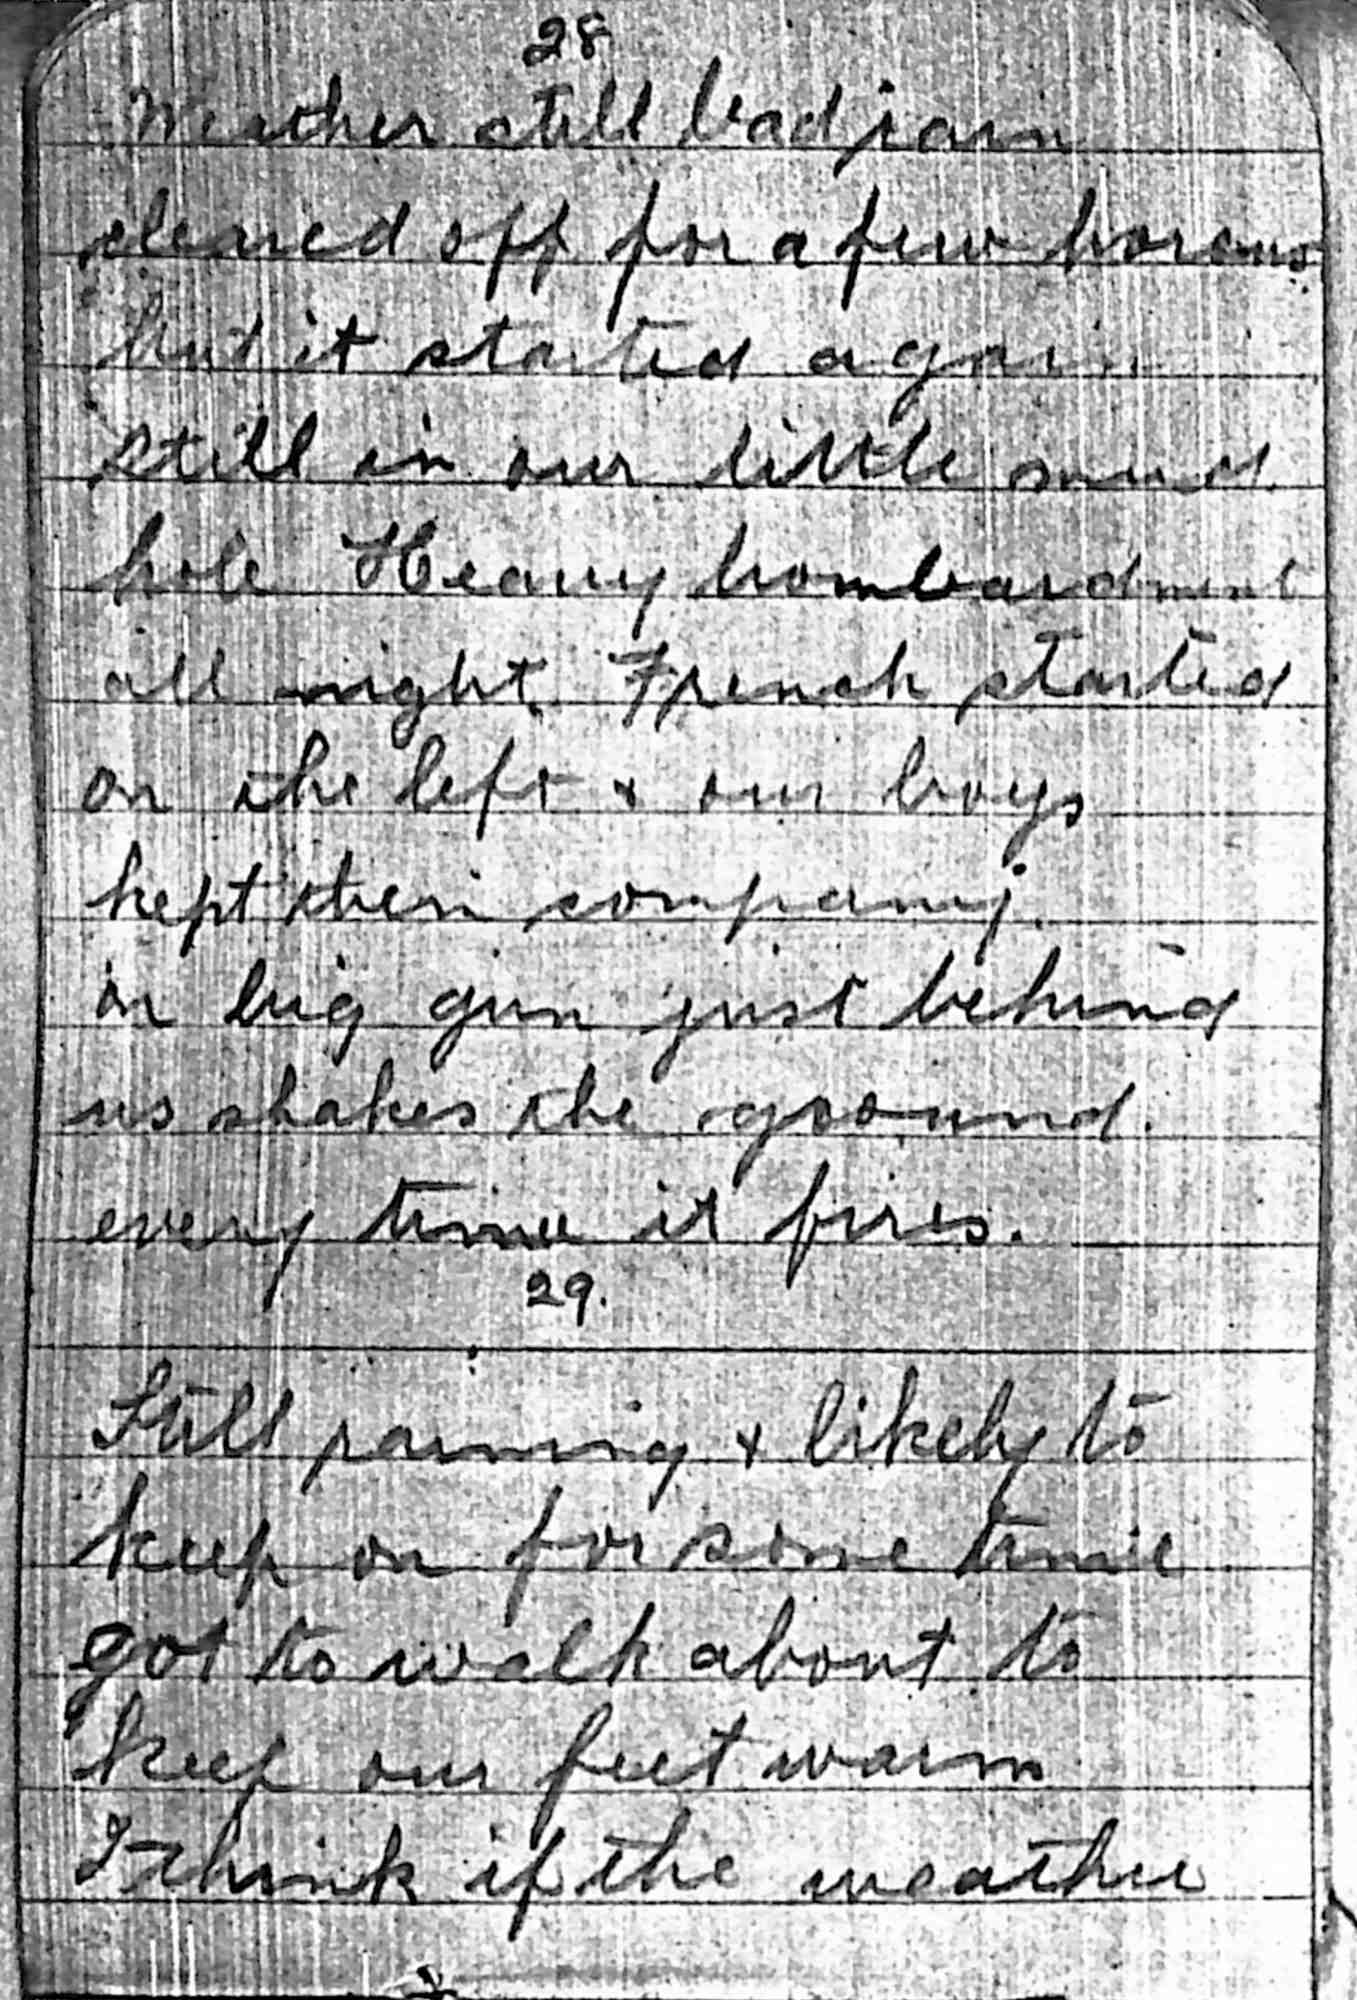 28
Weather still bad rain
cleared off for a few hours
but it started again
still in our little mud
hole Heavy bombardment
all night French started
on the left & our boys
kept them company
on big gun just behind
us shakes the ground.
every time it fires.
29.
Still raining & likely to
keep on for some time
got to walk about to
keep our feet warm
I think if the weather